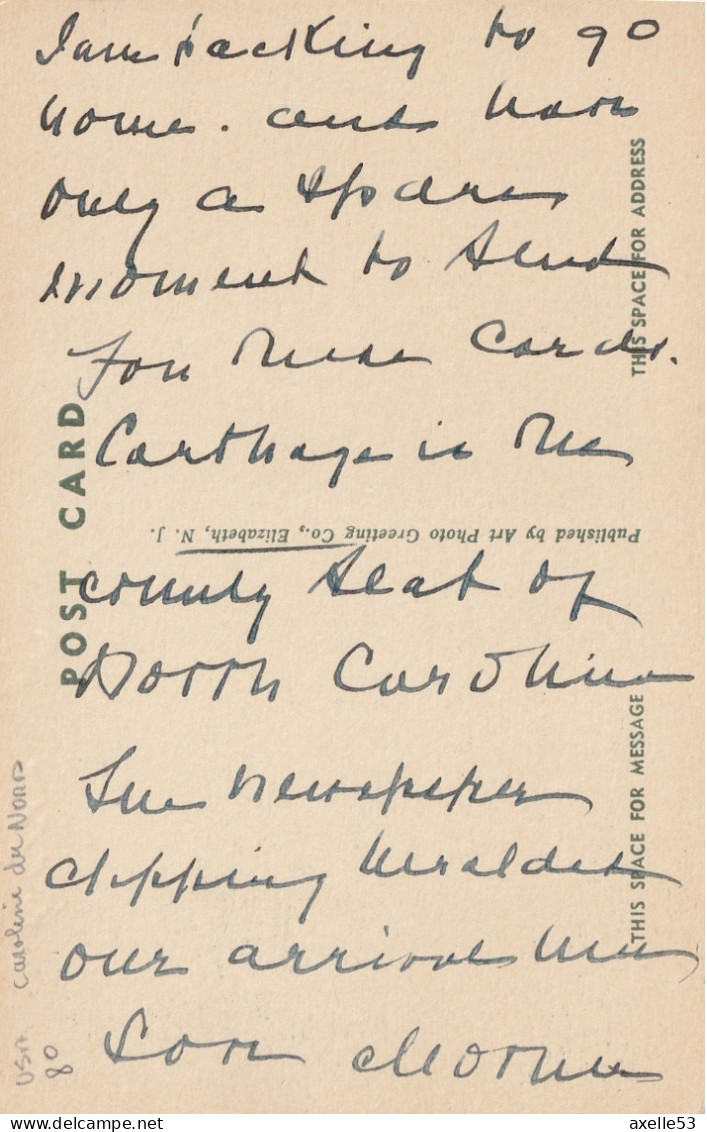 I am packing to go
home. and have
only a spare
moment to send
You these Cards.
Carthage is the
county seat of
North Carolina
The newspaper
clipping heralded
our arrival here
Love Mother
POST CARD
THIS SPACE FOR ADDRESS
Published by Art Photo Greeting Co., Elizabeth, N. J.
THIS SPACE FOR MESSAGE
Caroline du Nord
USA
80
axelle53